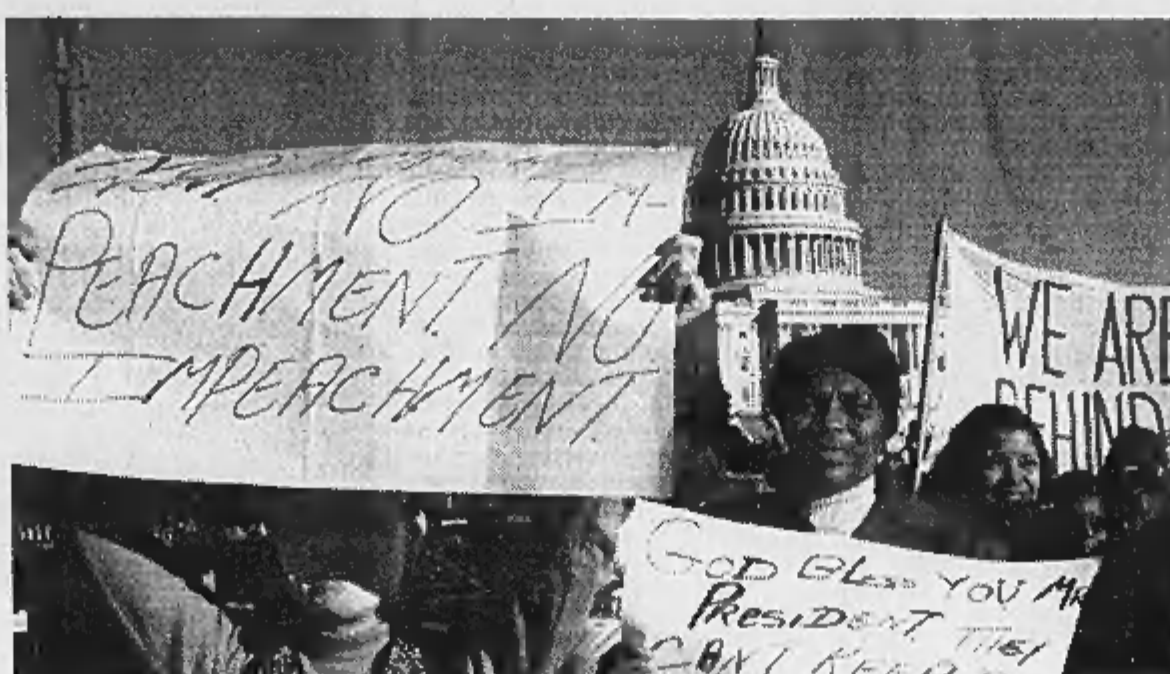 NO IM-
PEACHMENT NO
IMPEACHMENT
WE ARE
BEHIND
GOD BLESS YOU MR
PRESIDENT THEY
CAN'T KEEP